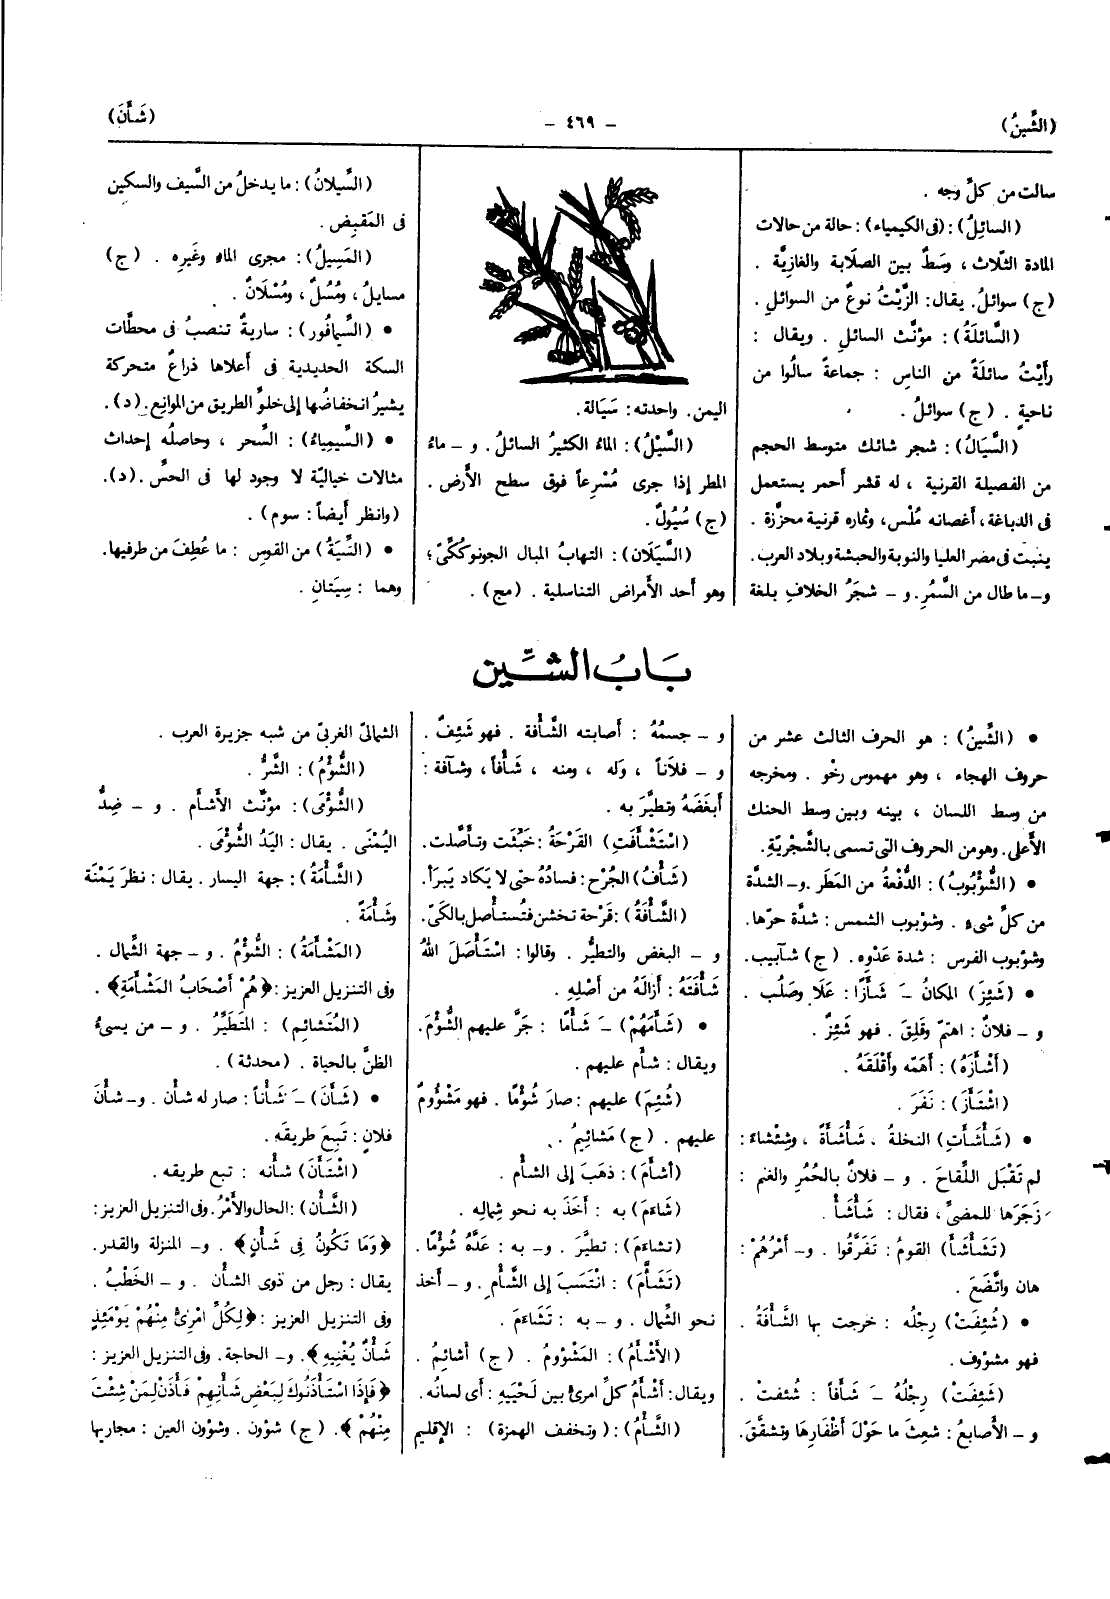 (الشِّينُ)
- ٤٦٩ -
(شَأَنَ)
سالت من كلِّ وجه .
(السائِلُ) : (فى الكيمياء) : حالة من حالات
المادة الثلاث ، وَسَطٌ بين الصلابة والغازِيَّة .
(ج) سوائلُ. يقال : الزَّيْتُ نوعٌ من السوائلِ .
(السَّائلَةُ) : مؤنَّث السائلِ . ويقال :
رأَيْتُ سائلَةً من الناسِ : جماعةً سالُوا من
ناحيةٍ . (ج) سوائلُ .
(السَّيَالُ) : شجر شائك متوسط الحجم
من الفصيلة القرنية ، له قشر أحمر يستعمل
فى الدباغة، أغصانه مُلْس، وثماره قرنية محزَّزة .
ينبت فى مصر العليا والنوبة والحبشة وبلاد العرب.
و- ما طال من السَّمُرِ. و - شجَرُ الخلافِ بلغة
اليمن. واحدته : سَيَالة.
(السَّيْلُ) : الماءُ الكثيرُ السائلُ. و - ماءُ
المطر إذا جرى مُسْرعاً فوق سطح الأَرض .
(ج) سُيُولٌ.
(السَّيَلَان) : التهابُ المبال الجونوكُكِّىّ ؛
وهو أحد الأَمراض التناسلية . (مج) .
(السِّيلانُ) : ما يدخلُ من السَّيف والسكين
فى المَقبِض .
(المَسِيلُ) : مجرى الماء وغَيرِه . (ج)
مسايلُ ، ومُسُلٌ ، ومُسْلَانٌ .
• (السِّيمافُور) : ساريةٌ تنصبُ فى محطَّات
السكة الحديدية فى أعلاها ذراعٌ متحركة
يشيرُ انخفاضُها إلى خلوِّ الطريق من الموانع. (د).
• (السِّيمِياءُ) : السِّحر ، وحاصلُه إحداث
مثالات خياليّة لا وجود لها فى الحسِّ .(د).
(وانظر أيضاً : سوم) .
• (السِّيَةُ) من القوسِ : ما عُطِفَ من طرفيها.
وهما : سِيَتانِ .
بَابُ الشِّين
• (الشِّينُ) : هو الحرف الثالث عشر من
حروف الهجاء ، وهو مهموس رخْو . ومخرجه
من وسط اللسان ، بينه وبين وسط الحنك
الأَعلى. وهو من الحروف التى تسمى بالشَّجْرِيَّةِ.
• (الشُّؤْبُوبُ) : الدُّفْعةُ من المَطَرِ .و- الشدَّة
من كلِّ شىءٍ . وشؤبوب الشمس : شدَّة حرّها.
وشؤبوب الفرس : شدة عَدْوِه. (ج) شآبيب.
• (شَئِزَ) المكانُ َ- شَأَزًا : غَلَا وصَلُب .
و - فلانٌ : اهتمّ وقَلِقَ . فهو شَئِزٌ .
(أَشْأَزَهُ) : أَهَمّه وأَقْلَقَهُ .
(اشْتَأَزَ) : نَفَرَ .
• (شَأْشَأَتِ) النخلةُ ، شَأْشَأَةً ، وشِئْشاءً :
لم تَقْبَل اللِّقاحَ . و - فلانٌ بالحُمُرِ والغنمِ :
زَجَرَها للمضىِّ ، فقال : شَأْشَأْ .
(تَشَأْشَأَ) القومُ : تَفَرَّقُوا . و- أَمْرُهُمْ :
هان واتَّضَعَ .
• (شُئِفَتْ) رِجْلُه : خرجت بها الشَّأْفَةُ .
فهو مشئوف .
(شَئِفَتْ) رِجْلُهُ َ- شَأَفاً : شُئفتْ .
و - الأَصابعُ : شعِثَ ما حَوْلَ أَظْفَارِهَا وتشقَّقَ.
و - جسمُهُ : أصابته الشَّأْفة . فهو شَئِفٌ .
و - فلاناً ، وله ، ومنه ، شَأْفاً ، وشآفة :
أَبغَضَهُ وتطيَّرَ به .
(اسْتَشْأَفَتِ) القَرْحَةُ : خَبُثَت وتأَصَّلت.
(شَأَفُ) الجُرْحِ : فسادُهُ حتى لا يكاد يَبرَأُ.
(الشَّأْفَةُ) : قَرْحة تخشن فتُستأْصل بالكَىّ.
و - البغض والتطيُّر . وقالوا : اسْتَأْصَلَ اللهُ
شَأْفَتَهُ : أَزالَهُ من أَصْلِهِ .
• (شَأَمَهُمْ) َ- شَأْمًا : جَرَّ عليهم الشُّؤْمَ.
ويقال : شأَم عليهم .
(شُئِمَ) عليهم : صارَ شُؤْمًا . فهو مَشْؤُومٌ
عليهم . (ج) مَشائِيمُ .
(أَشأَمَ) : ذهَبَ إلى الشأْم .
(شَاءَمَ) به : أَخَذَ به نحو شِمالِه .
(تشاءَمَ) : تطيَّرَ . و- به : عَدَّهُ شُؤْمًا .
(تَشَأَّمَ) : انْتَسَبَ إلى الشَّأْمِ . و - أَخذ
نحو الشِّمال . و - به : تَشَاءَمَ .
(الأَشْأَمُ) : المَشْؤُومُ . (ج) أَشائمُ .
ويقال : أَشْأَمُ كلِّ امرئ بين لَحْيَيهِ : أى لسانُه.
(الشَّأْمُ) : (وتخفف الهمزة) : الإقليم
الشمالىّ الغربىّ من شبه جزيرة العرب .
(الشُّؤْمُ) : الشَّرُّ .
(الشُّؤْمَى) : مؤنَّث الأَشأَم . و - ضِدُّ
اليُمْنَى . يقال : اليَدُ الشُّؤْمَى .
(الشَّأْمَةُ) : جهة اليسار . يقال : نظرَ يَمْنَة
وشَأْمَةً .
(المَشْأَمَةُ) : الشُّؤْمُ . و - جهة الشِّمال .
وفى التنزيل العزيز : ﴿هُمْ أَصْحَابُ المَشْأَمَةِ﴾ .
(المُتشائِم) : المُتَطَيِّرُ . و - من يسىءُ
الظنَّ بالحياة . (محدثة) .
• (شَأَنَ) َ- شَأْناً : صار له شأْن . و- شأْنَ
فلانٍ : تَبِعَ طريقَه .
(اشْتَأَنَ) شأْنه : تبع طريقه .
(الشَّأْن) : الحال والأَمْرُ. وفى التنزيل العزيز :
﴿وَمَا تَكُونُ فِى شَأْنٍ﴾ . و- المنزلة والقدر.
يقال : رجل من ذوى الشأْن . و - الخَطْبُ .
وفى التنزيل العزيز : ﴿لِكُلِّ امْرِئٍ مِنْهُمْ يَوْمَئِذٍ
شَأْنٌ يُغْنِيهِ﴾. و- الحاجة. وفى التنزيل العزيز :
﴿فَإِذَا اسْتَأْذَنُوكَ لِبَعْضِ شَأْنِهِمْ فَأْذَنْ لِمَنْ شِئْتَ
مِنْهُمْ﴾. (ج) شؤون. وشؤون العين : مجاريها